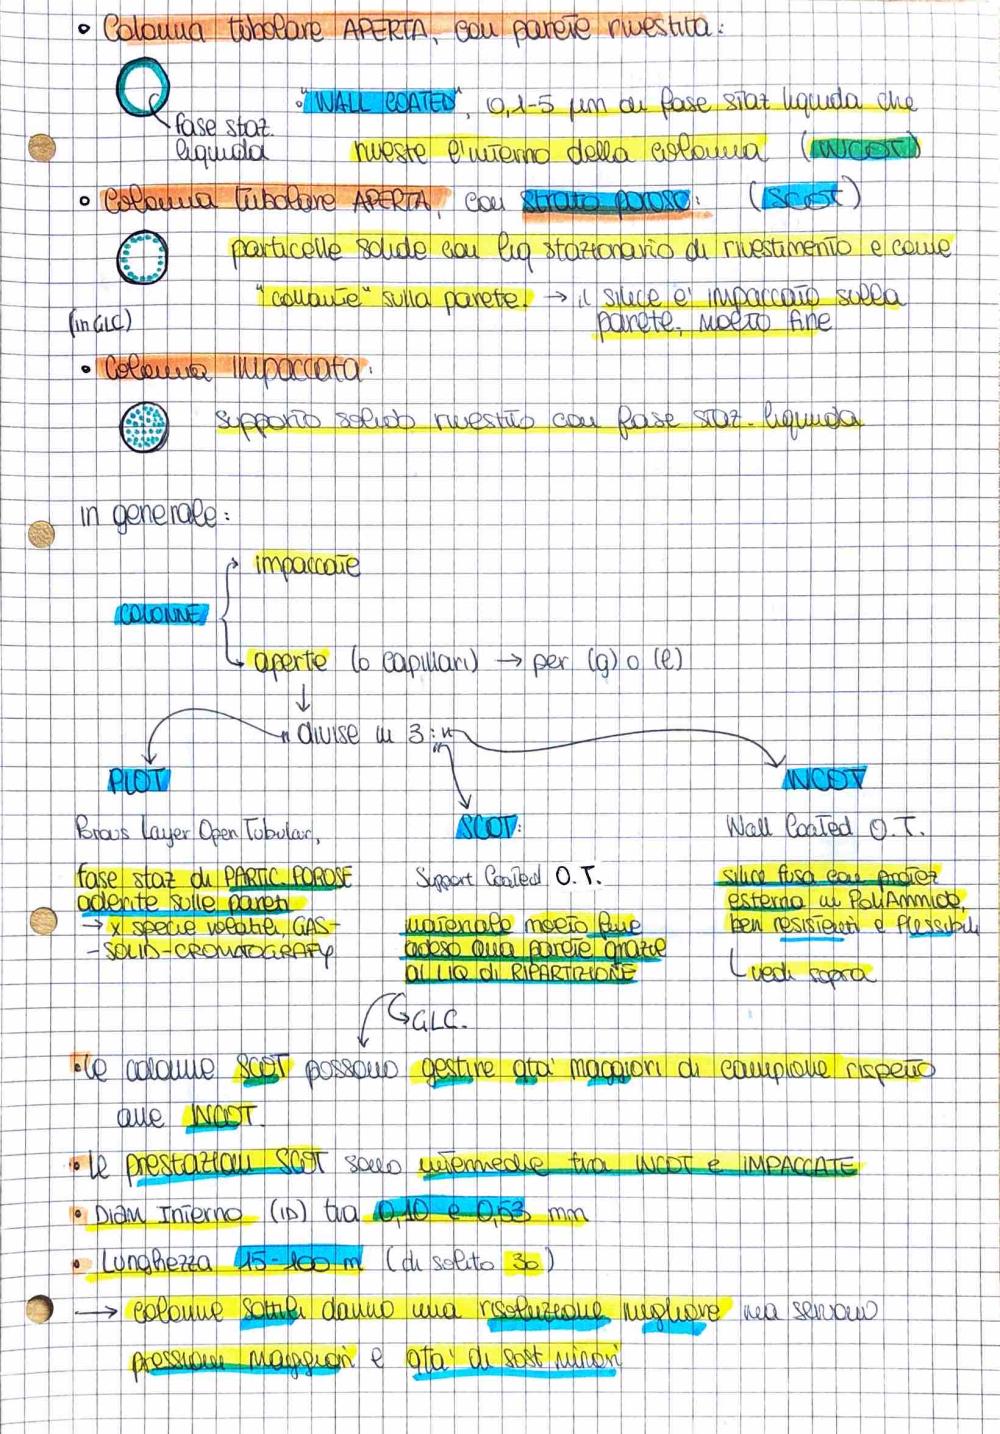 • Colonna tubolare APERTA, con parete rivestita:
"WALL COATED", 0,1-5 μm di fase staz liquida che
fase staz.
liquida
riveste l'interno della colonna (WCOT)
• Colonna tubolare APERTA, con strato poroso: (SCOT)
particelle solide con liq stazionario di rivestimento e come
"collante" sulla parete. → il silice e' impaccato sulla
parete, molto fine
(in GLC)
• Colonna IMPACCATA:
supporto solido rivestito con fase staz. liquida
in generale:
impaccate
COLONNE
aperte (o capillari) → per (g) o (l)
↓
divise in 3:
PLOT
WCOT
SCOT:
Porous Layer Open Tubular,
Wall Coated O.T.
fase staz di PARTIC. POROSE
aderite sulle pareti
→ x specie volatili, GAS-
-SOLID-CROMATOGRAFY
Support Coated O.T.
materiale molto fine
adeso alla parete grazie
al LIQ di RIPARTIZIONE
silice fusa con protez
esterna in PoliAmmide,
ben resistenti e flessibili
vedi sopra
GLC.
• le colonne SCOT possono gestire qta' maggiori di campione rispetto
alle WCOT.
• le prestazioni SCOT sono intermedie tra WCOT e IMPACCATE
• Diam Interno (ID) tra 0,10 e 0,53 mm
• Lunghezza 15-100 m (di solito 30)
→ colonne sottili danno una risoluzione migliore ma servono
pressioni maggiori e qta' di sost minori